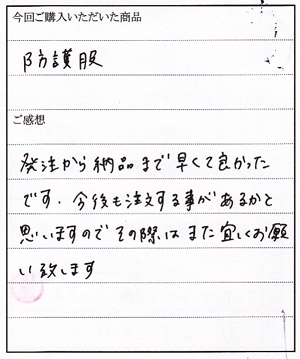 今回ご購入いただいた商品
防護服
ご感想
発注から納品まで早くて良かった
です。今後も注文する事があるかと
思いますのでその際はまた宜しくお願
い致します